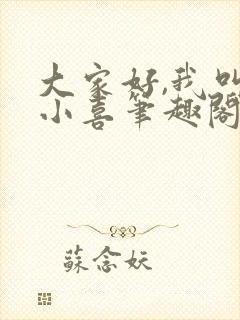 大家好,我叫
小喜笔趣阁
蘇念妖